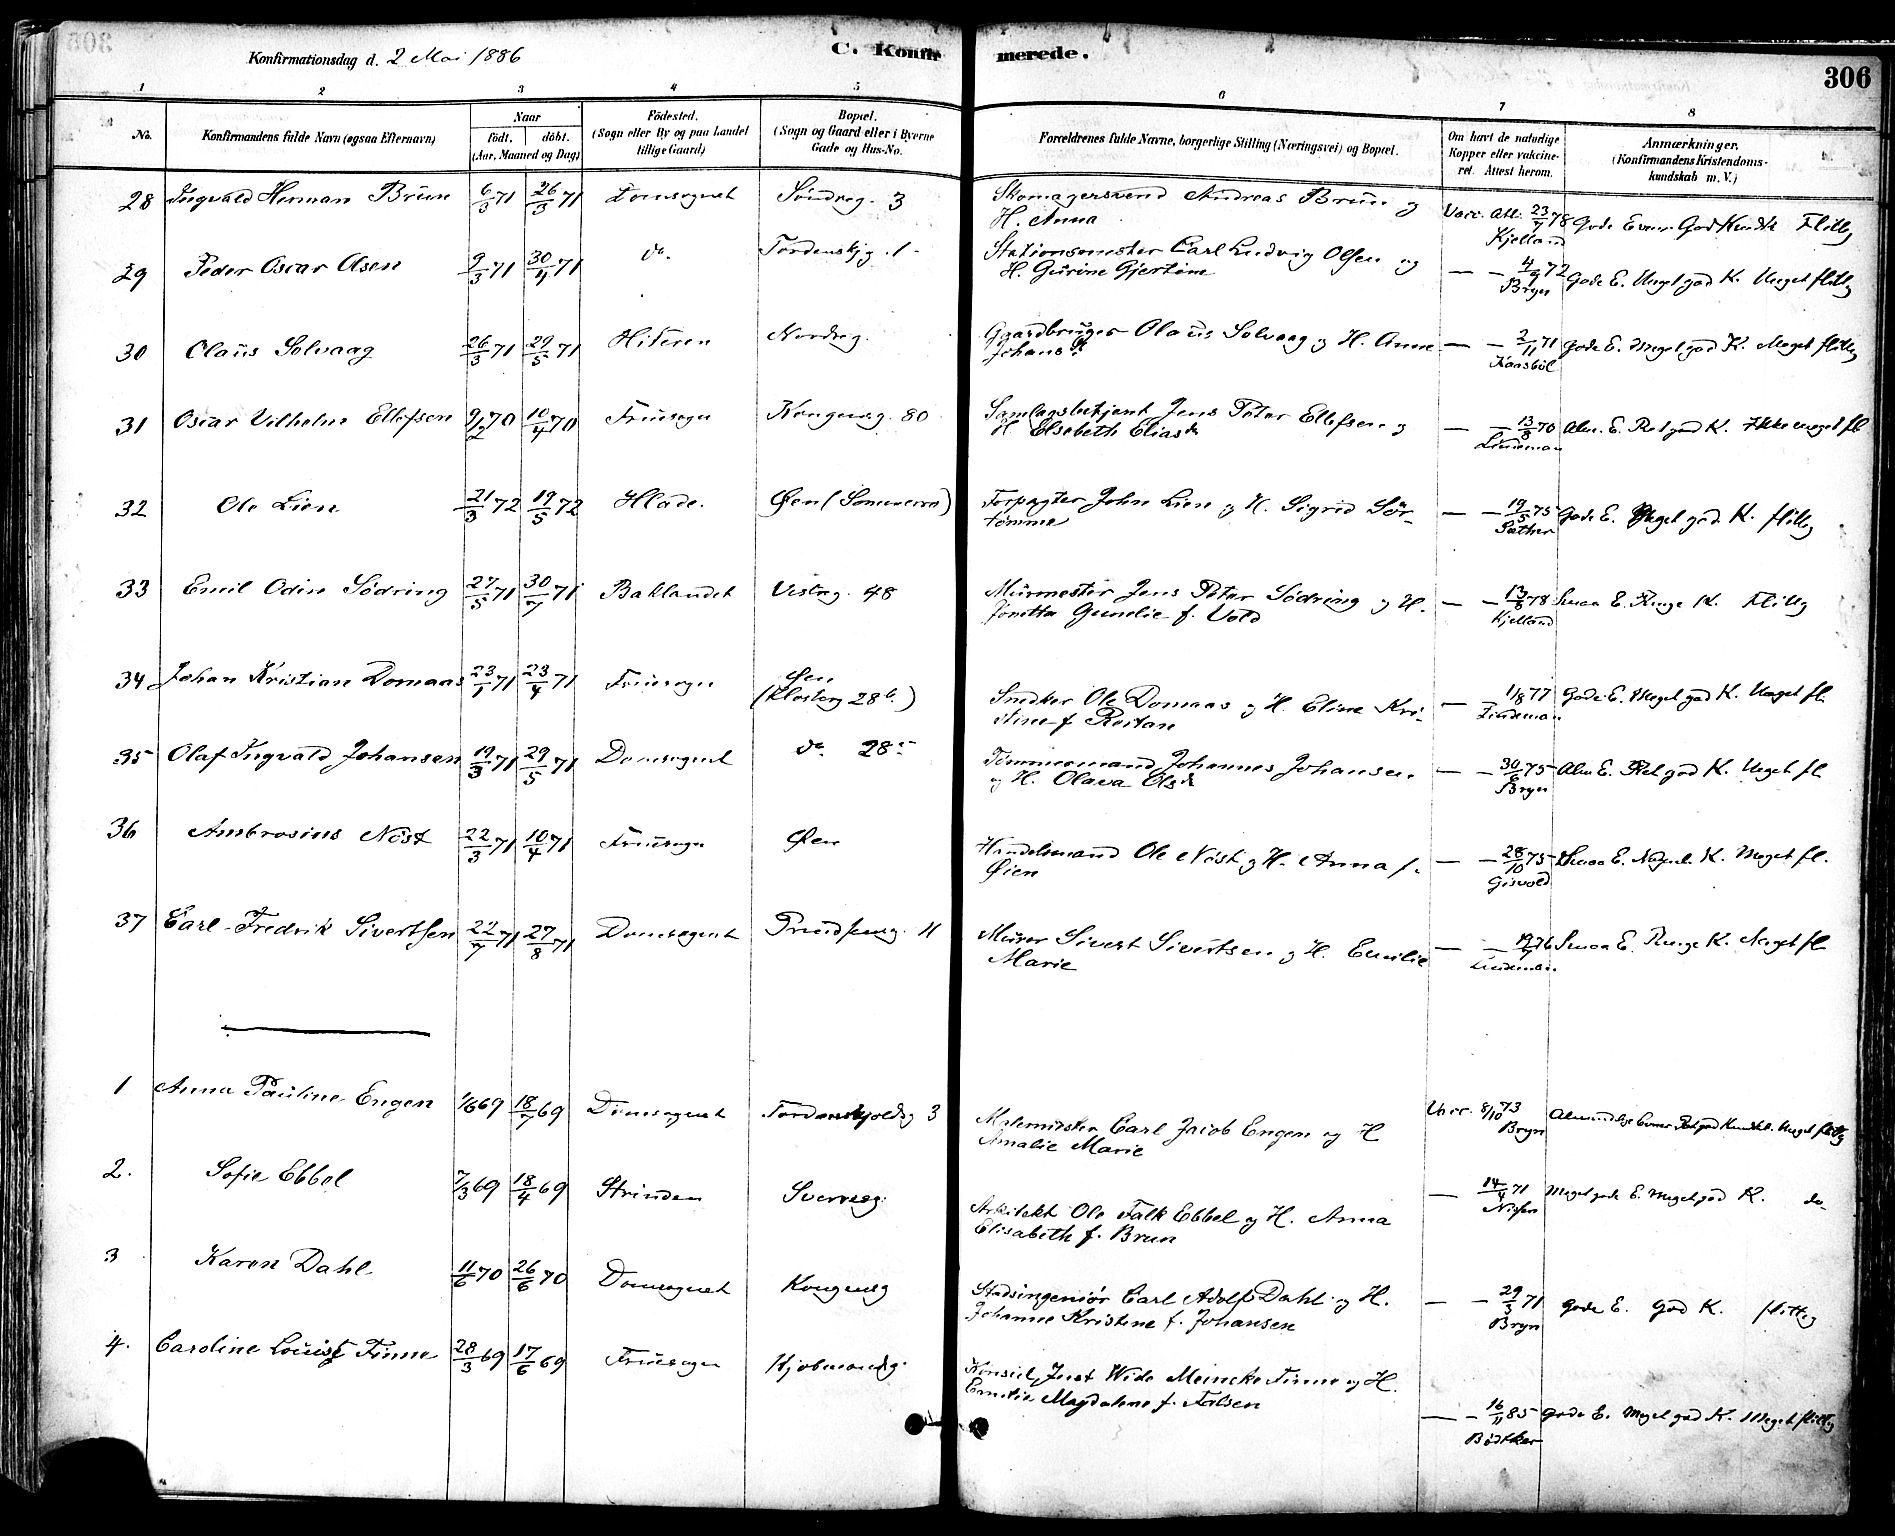 Konfirmationsdag d. 2 Mai 1886
C. Konfir merede.
306
1 2 3 4 5 6 7 8
No.
Konfirmandens fulde Navn (ogsaa Efternavn)
Naar
født, døbt.
(Aar, Maaned og Dag)
Fødested.
(Sogn eller By og paa Landet
tillige Gaard)
Bopæl.
(Sogn og Gaard eller i Byerne
Gade og Hus-No.
Forældrenes fulde Navne, borgerlige Stilling (Næringsvei) og Bopæl.
Om havt de naturlige
Kopper eller vakcine-
ret. Attest herom.
Anmærkninger.
(Konfirmandens Kristendoms-
kundskab m. V.)
28 Ingvald Herman Brun 6/3 71 26/3 71 Domsognet Søndreg. 3 Skomagersvend Andreas Brun og Vacc. Att. 23/7 78 Gode Evner God Kundsk Flittig
H. Anna Kjelland
29 Peder Oscar Olsen 9/3 71 30/4 71 do. Tordenskjg. 1 Stationsmster Carl Ludvig Olsen og — - 4/9 72 Gode E. Meget god K. Meget flittig
H. Gurine Gjertine Bryn
30 Olaus Solvaag 26/3 71 29/5 71 Hiteren Nordreg. Gaardbruger Olaus Solvaag og H. Anne — - 2/11 71 Gode E. Meget god K. Meget flittig
Johansdr. Kaasbøl
31 Oscar Vilhelm Ellefsen 9/2 70 10/4 70 Fruesogn Kongensg. 80 Samlagsbetjent Jens Peter Ellefsen og — - 13/8 70 Alm. E. Ret god K. Ikke meget fl
H. Elsebeth Eliasdr Lindeman
32 Ole Lien 21/3 72 19/5 72 Hlade. Øen (Sommeren) Forpagter John Lien og H. Sigrid Sør- — - 19/5 75 Gode E. Meget god K. flittig
tømme Sæther
33 Emil Odin Sødring 27/5 71 30/7 71 Baklandet Vestreg. 48 Murmester Jens Peter Sødring og H. — - 13/8 78 Smaa E. Ringe K. Flittig
Jonetta Gunelie f. Vold Kjelland
34 Johan Kristian Domaas 23/1 71 23/4 71 Fruesogn Øen Snedker Ole Domaas og H. Eline Kri- — - 1/8 77 Gode E. Meget god K. Meget fl.
(Klosterg 28b.) stine f Reitan Lindeman
35 Olaf Ingvald Johansen 19/3 71 29/5 71 Domsognet do 28 Tømmermand Johannes Johansen — - 30/6 75 Alm E. Ret god K. Meget fl
og H. Olava Olsdr Bryn
36 Ambrosius Nøst 22/3 71 10/4 71 Fruesogn Øen Handelsmand Ole Nøst og H. Anna f. — - 28/10 75 Smaa E. K. Meget fl.
Øien Gisvold
37 Carl Fredrik Sivertsen 22/7 71 27/8 71 Domsognet 11 Murer Sivert Sivertsen og H. Emilie — - 19/7 76 Smaa E. Ringe K. Meget fl
Marie Lindeman
1 Anna Pauline Engen 1/6 69 18/7 69 Domsognet Tordenskjoldsg 3 Malermester Carl Jacob Engen og H Vacc. 8/10 73 Almindelige Evner Ret god Kundsk. Meget flittig
Amalie Marie Bryn
2. Sofie Ebbel 7/3 69 18/4 69 Strinden Sverresg. Arkitekt Ole Falk Ebbel og H. Anna — 14/4 71 Meget gode E. Meget god K. do-
Elisabeth f. Brun
3 Karen Dahl 11/6 70 26/6 70 Domsognet Kongensg Stadsingeniør Carl Adolf Dahl og H. — - 29/3 71 Gode E. God K. flittig
Johanne Kristine f. Johansen Bryn
4. Caroline Louise Finne 28/3 69 17/6 69 Fruesogn Kjøbmandsg. Konsul Just Wide Meincke Finne og H.
Emilie Magdalene f. Falsen — - 16/11 85 Gode E. Meget god K. Meget flittig
Bødtker